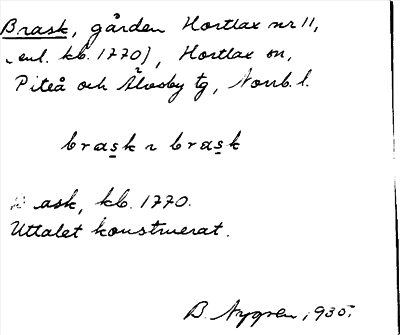 Brask, gården Hortlax nr 11,
(enl. kb. 1770), Hortlax sn,
Piteå och Älvsby tg, Norrb. l.
brask ~ brask
ask, kb. 1770.
Uttalet konstruerat.
B. Nygren, 1935.